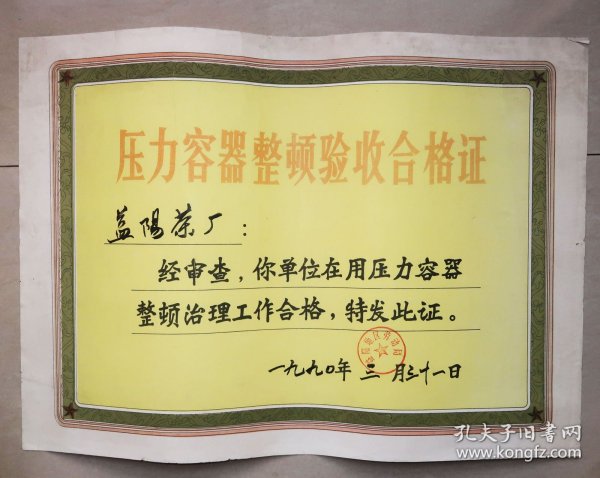 压力容器整顿验收合格证
益陽茶厂：
经审查，你单位在用压力容器
整顿治理工作合格，特发此证。
一九九〇年 三 月三十一日
孔夫子旧书网
www.kongfz.com